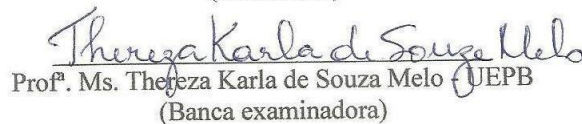 Thereza Karla de Souza Melo
Profª. Ms. Thereza Karla de Souza Melo - UEPB
(Banca examinadora)